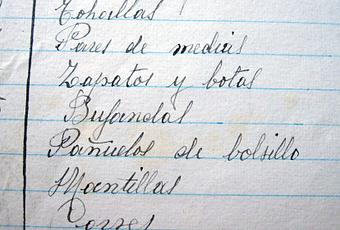 Tohallas
Pares de medias
Zapatos y botas
Bufandas
Pañuelos de bolsillo
Mantillas